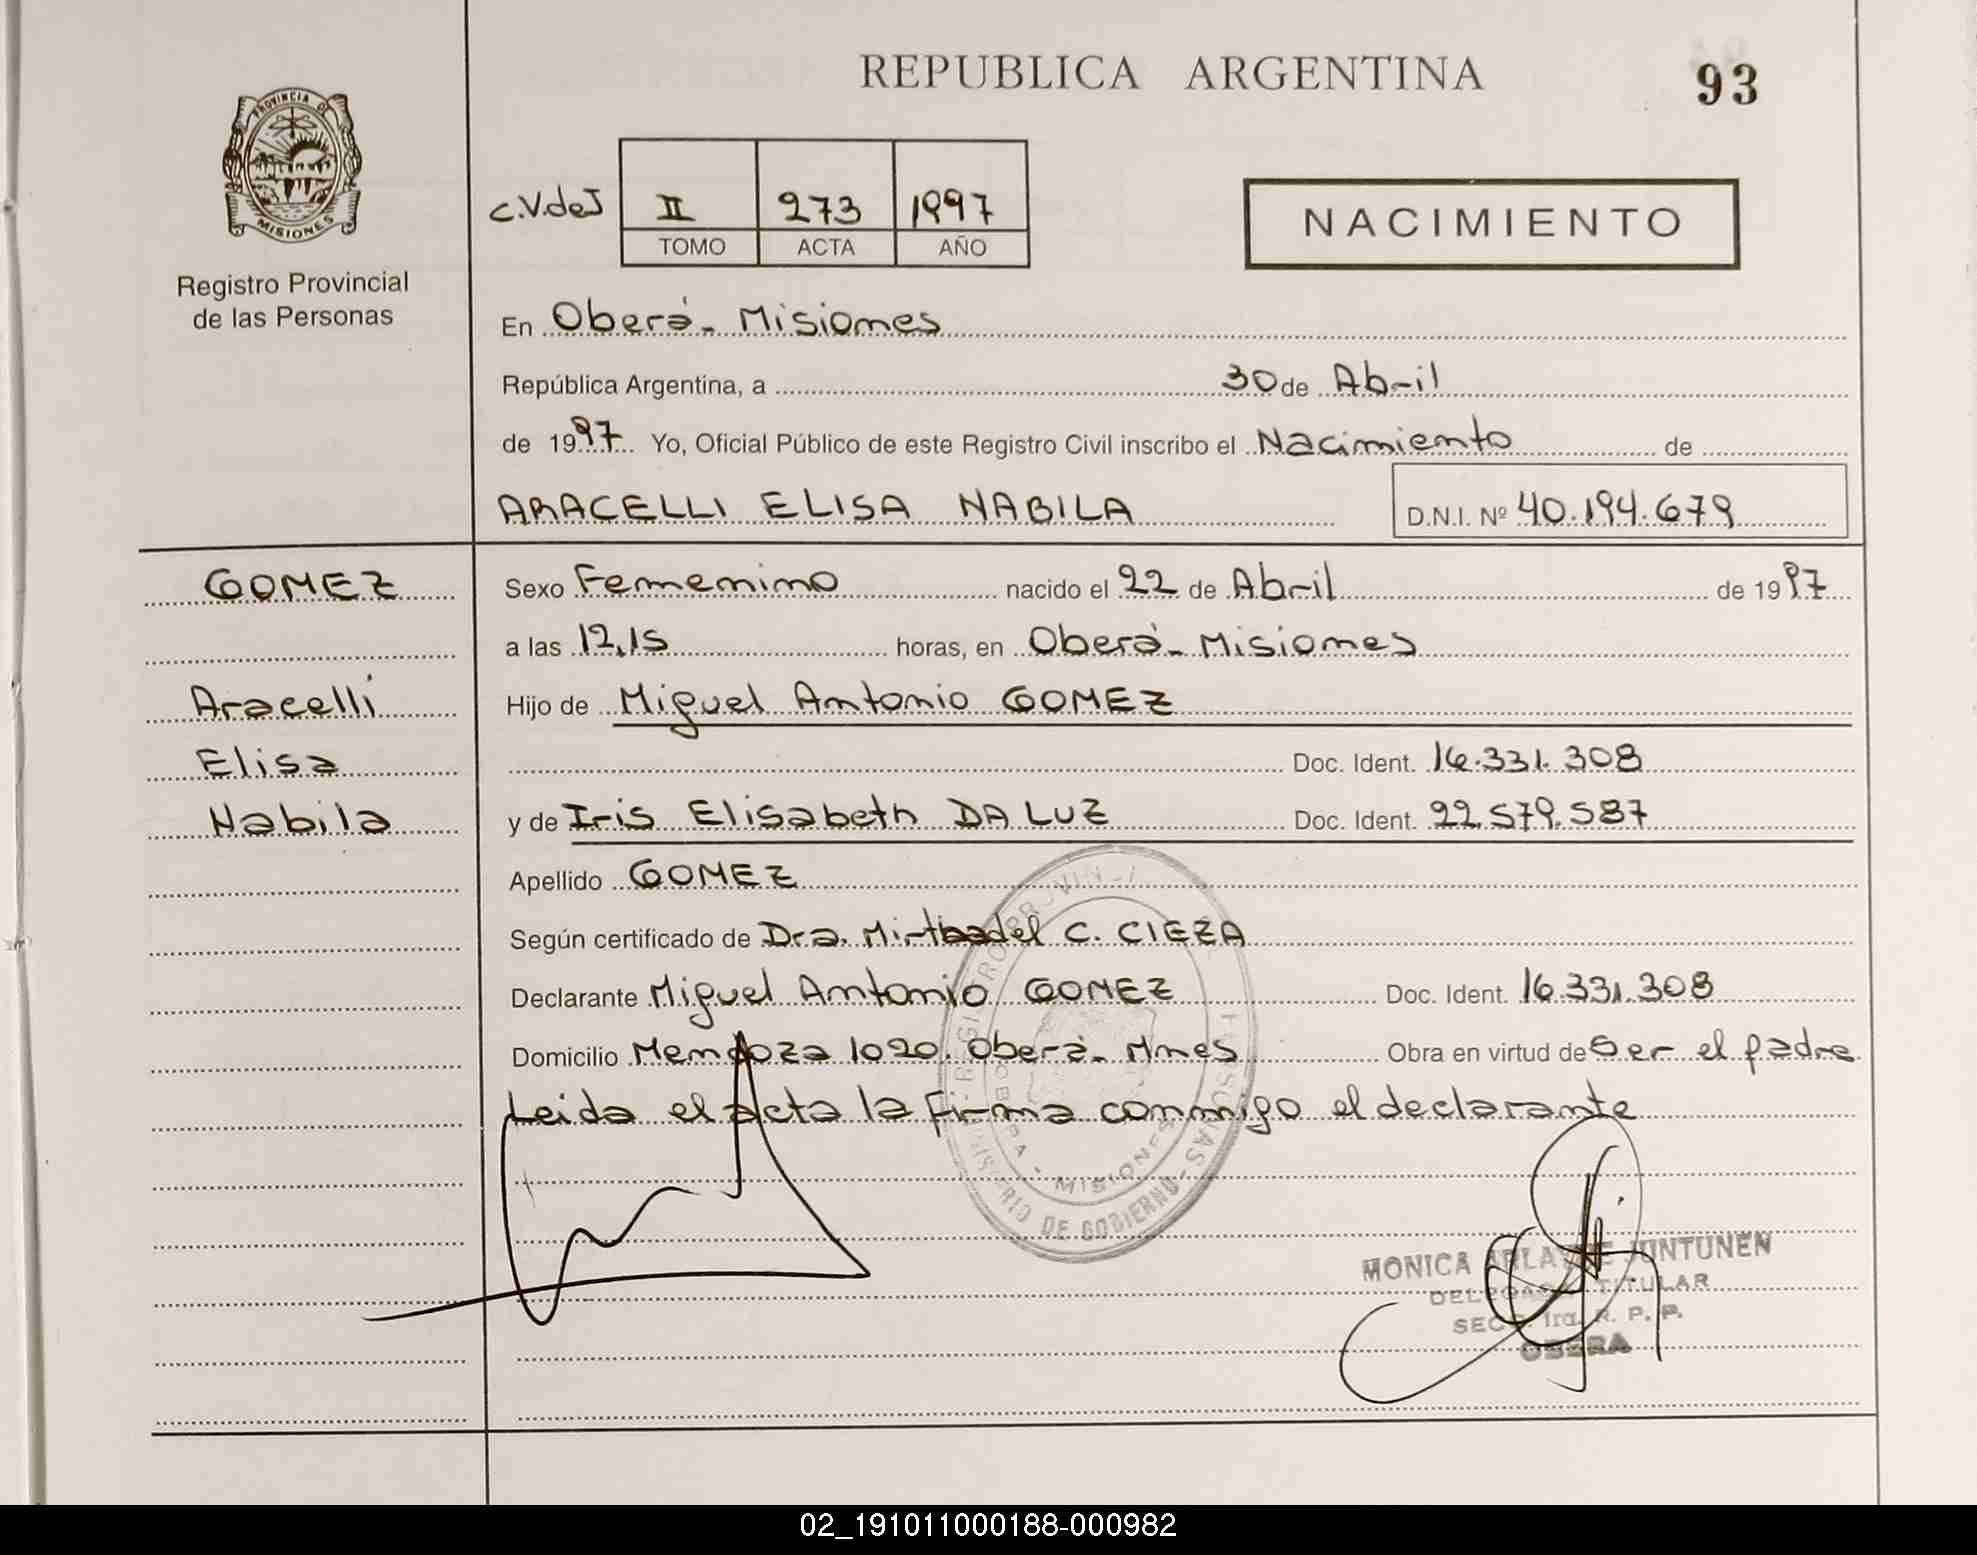 REPUBLICA ARGENTINA
93
PROVINCIA DE
MISIONES
Registro Provincial
de las Personas
c.V.deJ
II 273 1997
TOMO ACTA AÑO
NACIMIENTO
En Oberá - Misiones
República Argentina, a 30 de Abril
de 1997 Yo, Oficial Público de este Registro Civil inscribo el Nacimiento de
ARACELLI ELISA NABILA D.N.I. Nº 40.194.679
GOMEZ
Aracelli
Elisa
Nabila
Sexo Femenino nacido el 22 de Abril de 1997
a las 12,15 horas, en Oberá - Misiones
Hijo de Miguel Antonio GOMEZ
Doc. Ident. 16.331.308
y de Iris Elisabeth DA LUZ Doc. Ident. 22.579.587
Apellido GOMEZ
Según certificado de Dra. C. CIEZA
Declarante Miguel Antonio GOMEZ Doc. Ident. 16.331.308
Domicilio Mendoza 1020. Oberá - Mnes Obra en virtud de Ser el padre
Leida el acta la firma conmigo el declarante
MISIONES
DE GOBIERNO
MONICA JUNTUNEN
DELEGADA TITULAR
SECC. 1ra. R. P. P.
OBERA
02_191011000188-000982